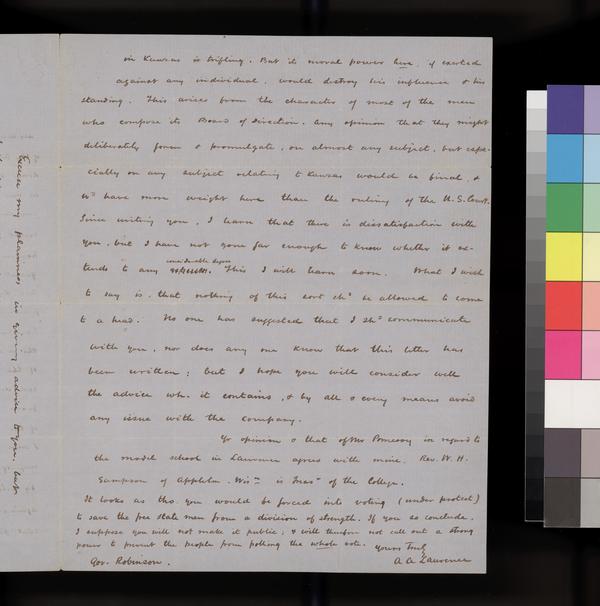 in Kansas is trifling. But its moral power here, if exerted
against any individual, would destroy his influence & his
standing. This arises from the character of most of the men
who compose its Board of direction. Any opinion that they might
deliberately form & promulgate, on almost any subject, but espe-
cially on any subject relating to Kansas would be final, &
wd have more weight here than the ruling of the U.S. Court.
Since writing you, I learn that there is dissatisfaction with
you, but I have not gone far enough to know whether it ex-
considerable degree
tends to any This I will learn soon. What I wish
to say is, that nothing of this sort shd be allowed to come
to a head. No one has suggested that I shd communicate
with you, nor does any one know that this letter has
been written; but I hope you will consider well
the advice wh. it contains, & by all & every means avoid
any issue with the company.
Yr opinion & that of Mr Pomeroy in regard to
the model school in Lawrence agrees with mine. Rev. W. H.
Sampson of Appleton, Wisn is Treasr of the College.
It looks as tho. you would be forced into voting (under protest)
to save the free state men from a division of strength. If you so conclude,
I suppose you will not make it public; & will therefore not call out a strong
power to prevent the people from polling the whole vote.
Yours Truly
Gov. Robinson. A. A. Lawrence
Excuse my plainness in giving advice to you, but